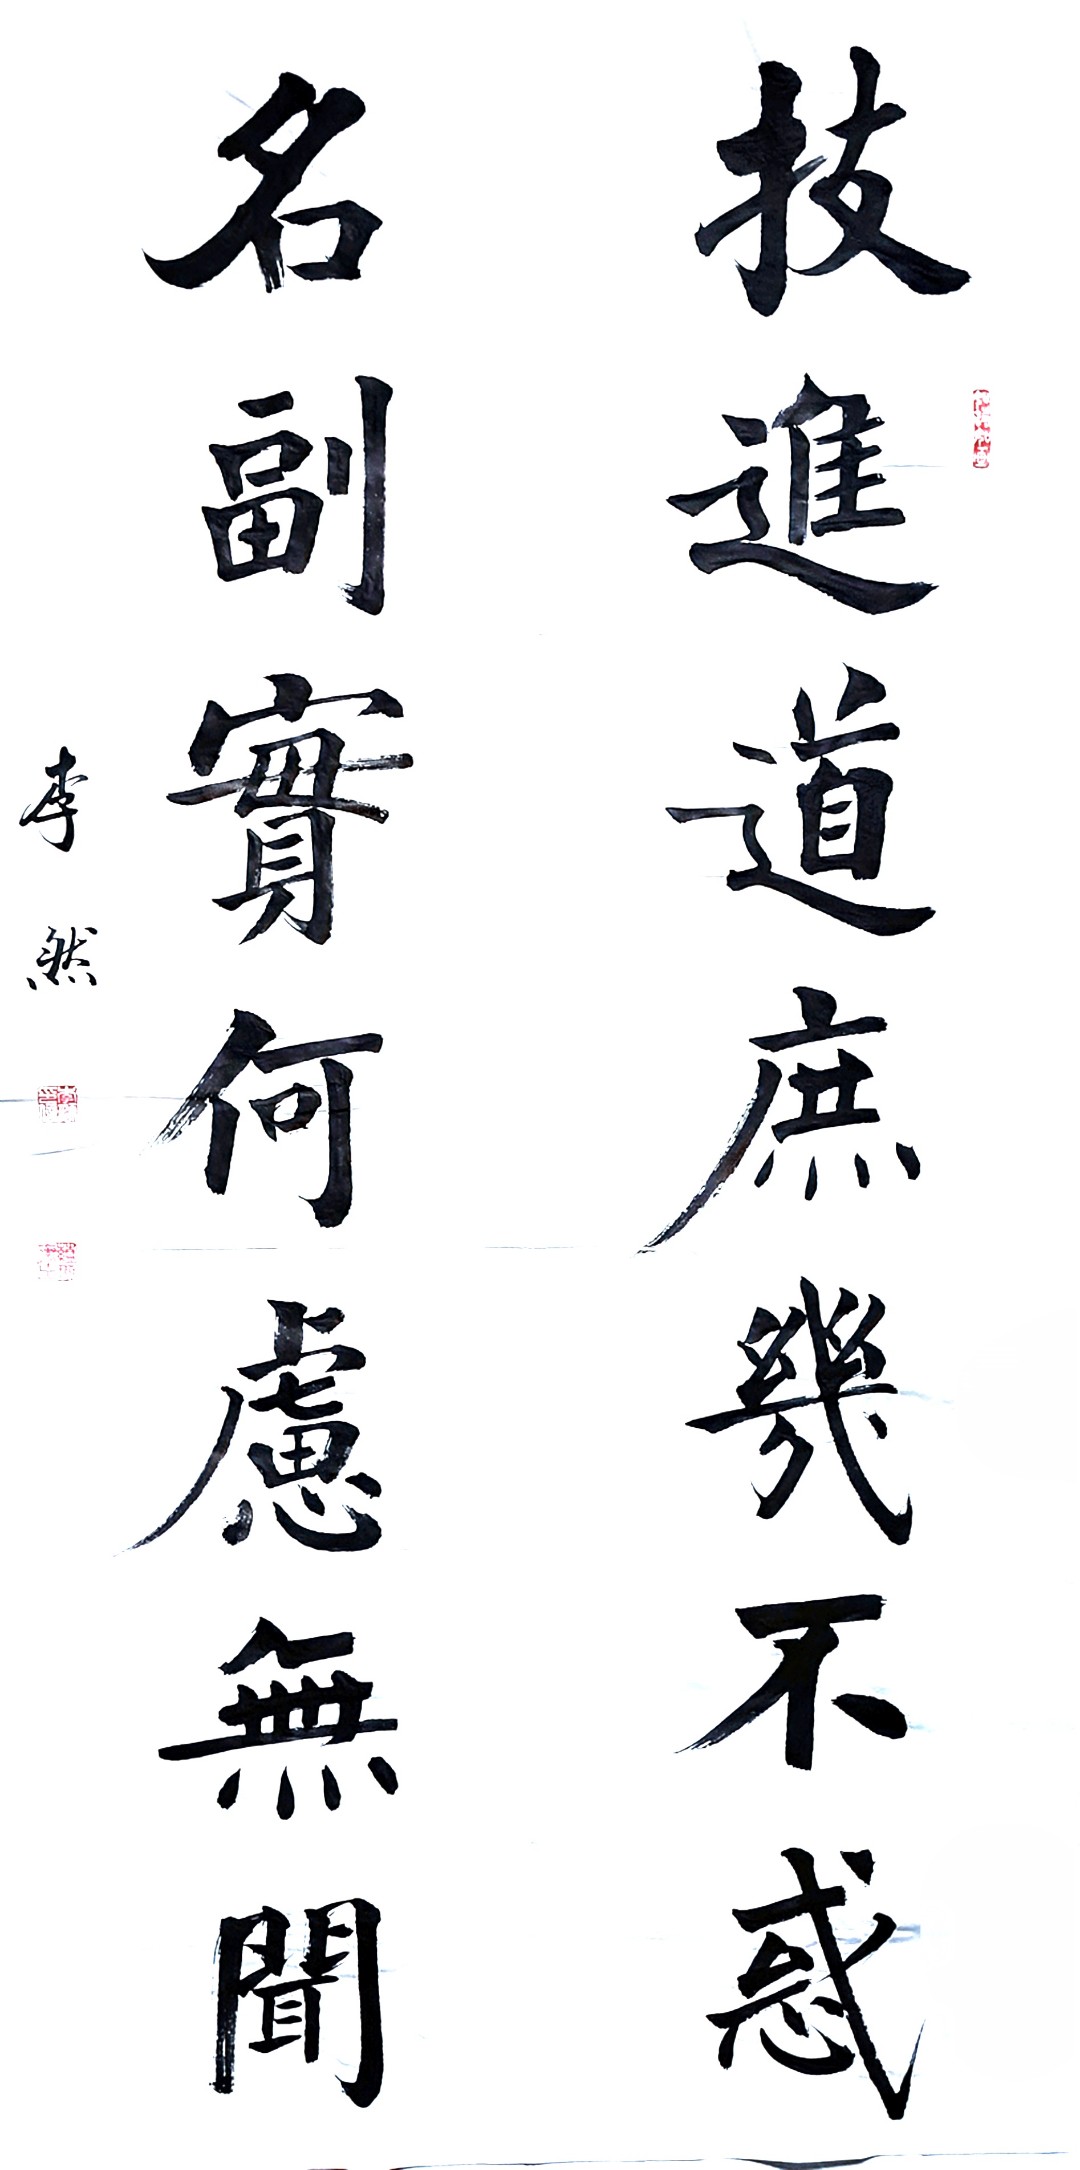 技進道庶幾不惑
名副實何慮無聞
李然